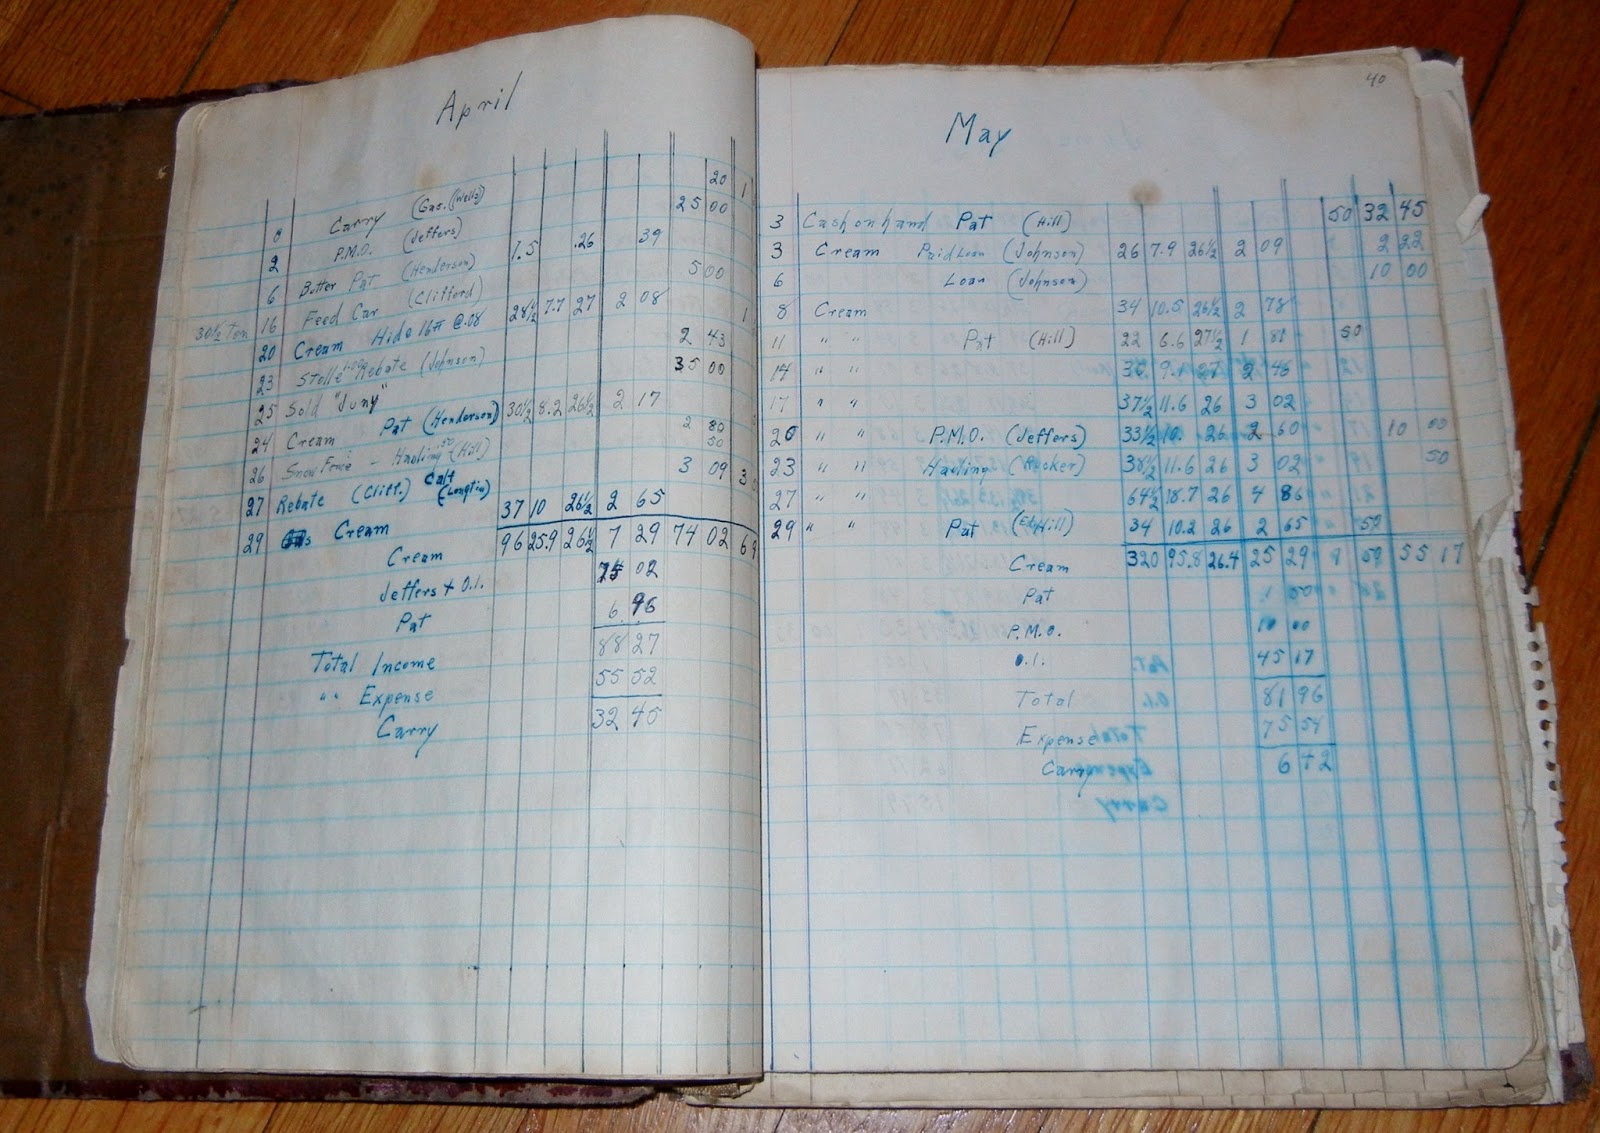 April
20 1
Carry (Gas.) (Wells) 25 00
2 P.M.O. (Jeffers) 1.5 .26 39
6 Butter Pat (Henderson) 5 00
30½ Ton 16 Feed Car (Clifford) 28½ 7.7 27 2 08 1
20 Cream Hide 16# @.08 2 43
23 Rebate (Johnson) 35 00
25 Sold "Juny"
24 Cream Pat (Henderson) 30½ 8.2 26½ 2 17 2 80
26 Snow Fence - Hauling (Hill) 50
27 Rebate (Cliff.) Calf (Longtin) 3 09 3
29 Cream 37 10 26½ 2 65
Cream 96 25.9 26½ 7 29 74 02 6
Jeffers + O.I. 02
Pat 6 96
Total Income 88 27
" " Expense 55 52
Carry 32 45
40
May
3 Cash on hand Pat (Hill) 50 32 45
3 Cream Paid Loan (Johnson) 26 7.9 26½ 2 09 2 22
6 Loan (Johnson) 10 00
8 Cream 34 10.5 26½ 2 78
11 " " Pat (Hill) 22 6.6 27½ 1 81 50
14 " " 9.1 27 2 46
17 " " 37½ 11.6 26 3 02
20 " " P.M.O. (Jeffers) 33½ 10. 26 2 60 10 00
23 " " Hauling 38½ 11.6 26 3 02 50
27 " " 64½ 18.7 26 4 86
29 " " Pat (Ed Hill) 34 10.2 26 2 65 50
Cream 320 95.8 26.4 25 29 55 17
Pat 1 50
P.M.O. 10 00
O.I. 45 17
Total 81 96
Expense 75 54
Carry 6 42